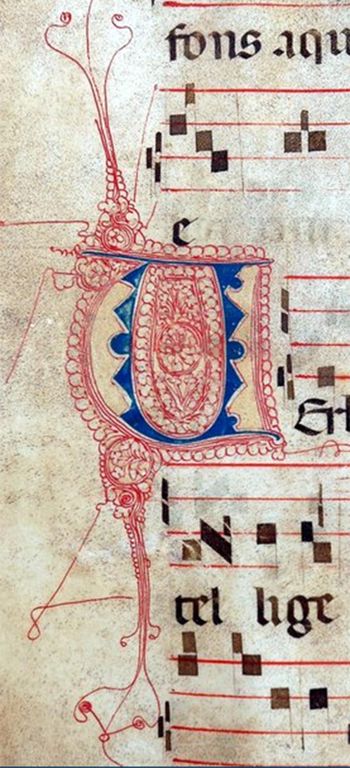 fons aqu
e
V Erb
tel lige